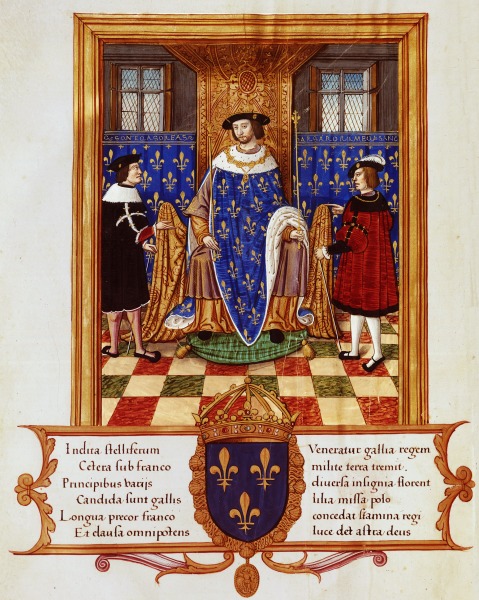 Indita stelliferum Veneratur gallia regem
Cetera sub franco milite terra tremit.
Principibus varijs diversa insignia florent
Candida sunt gallis lilia missa polo
Longua precor franco concedat stamina regi
Et clausa omnipotens luce det astra deus